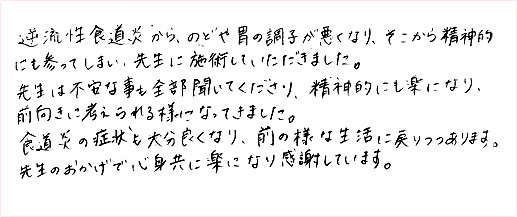 逆流性食道炎から、のどや胃の調子が悪くなり、そこから精神的
にも参ってしまい、先生に施術していただきました。
先生は不安な事も全部聞いてくださり、精神的にも楽になり、
前向きに考えられる様になってきました。
食道炎の症状も大分良くなり、前の様な生活に戻りつつあります。
先生のおかげで心身共に楽になり感謝しています。